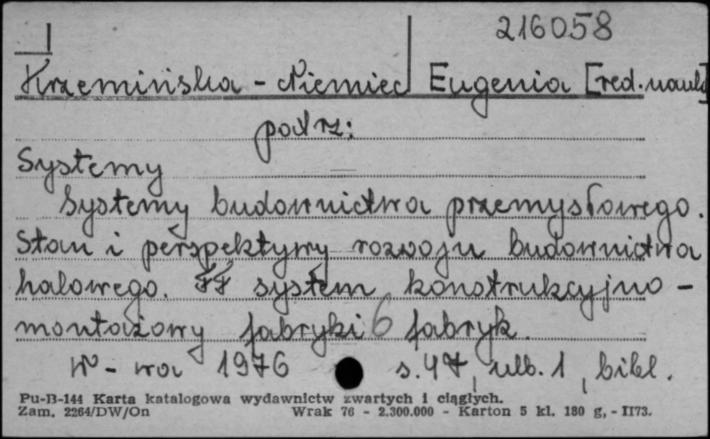 216058
Krzemińska - Niemiec Eugenia [red. nauk]
podrz:
Systemy
Systemy budownictwa przemysłowego.
Stan i perspektywy rozwoju budownictwa
halowego. FF system konstrukcyjno -
montażowy fabryki 6 fabryk.
W - wa 1976 s. 47, ulb. 1, bibl.
Pu-B-144 Karta katalogowa wydawnictw zwartych i ciągłych.
Zam. 2264/DW/On Wrak 76 - 2.300.000 - Karton 5 kl. 180 g, - II73.